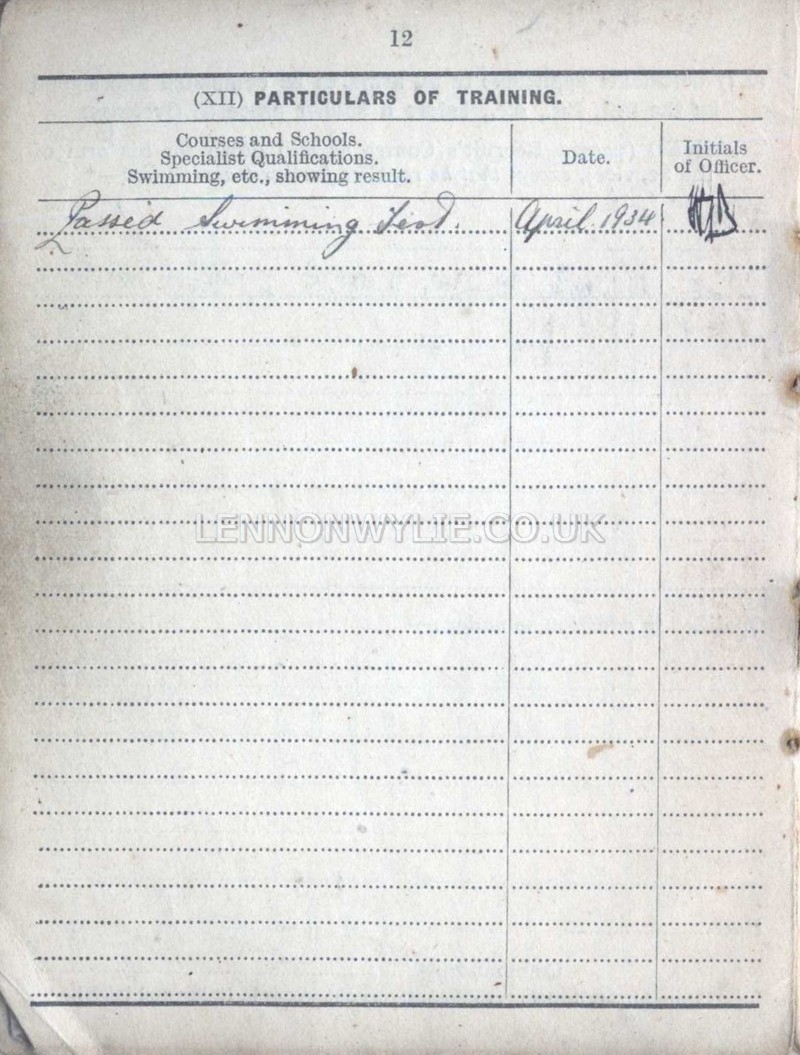 12
(XII) PARTICULARS OF TRAINING.
Courses and Schools.
Specialist Qualifications.
Swimming, etc., showing result.
Date.
Initials
of Officer.
Passed Swimming Test. April 1934
LENNONWYLIE.CO.UK